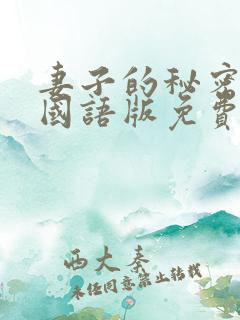 妻子的秘密
國語版免費
西大秦
未經同意禁止转载